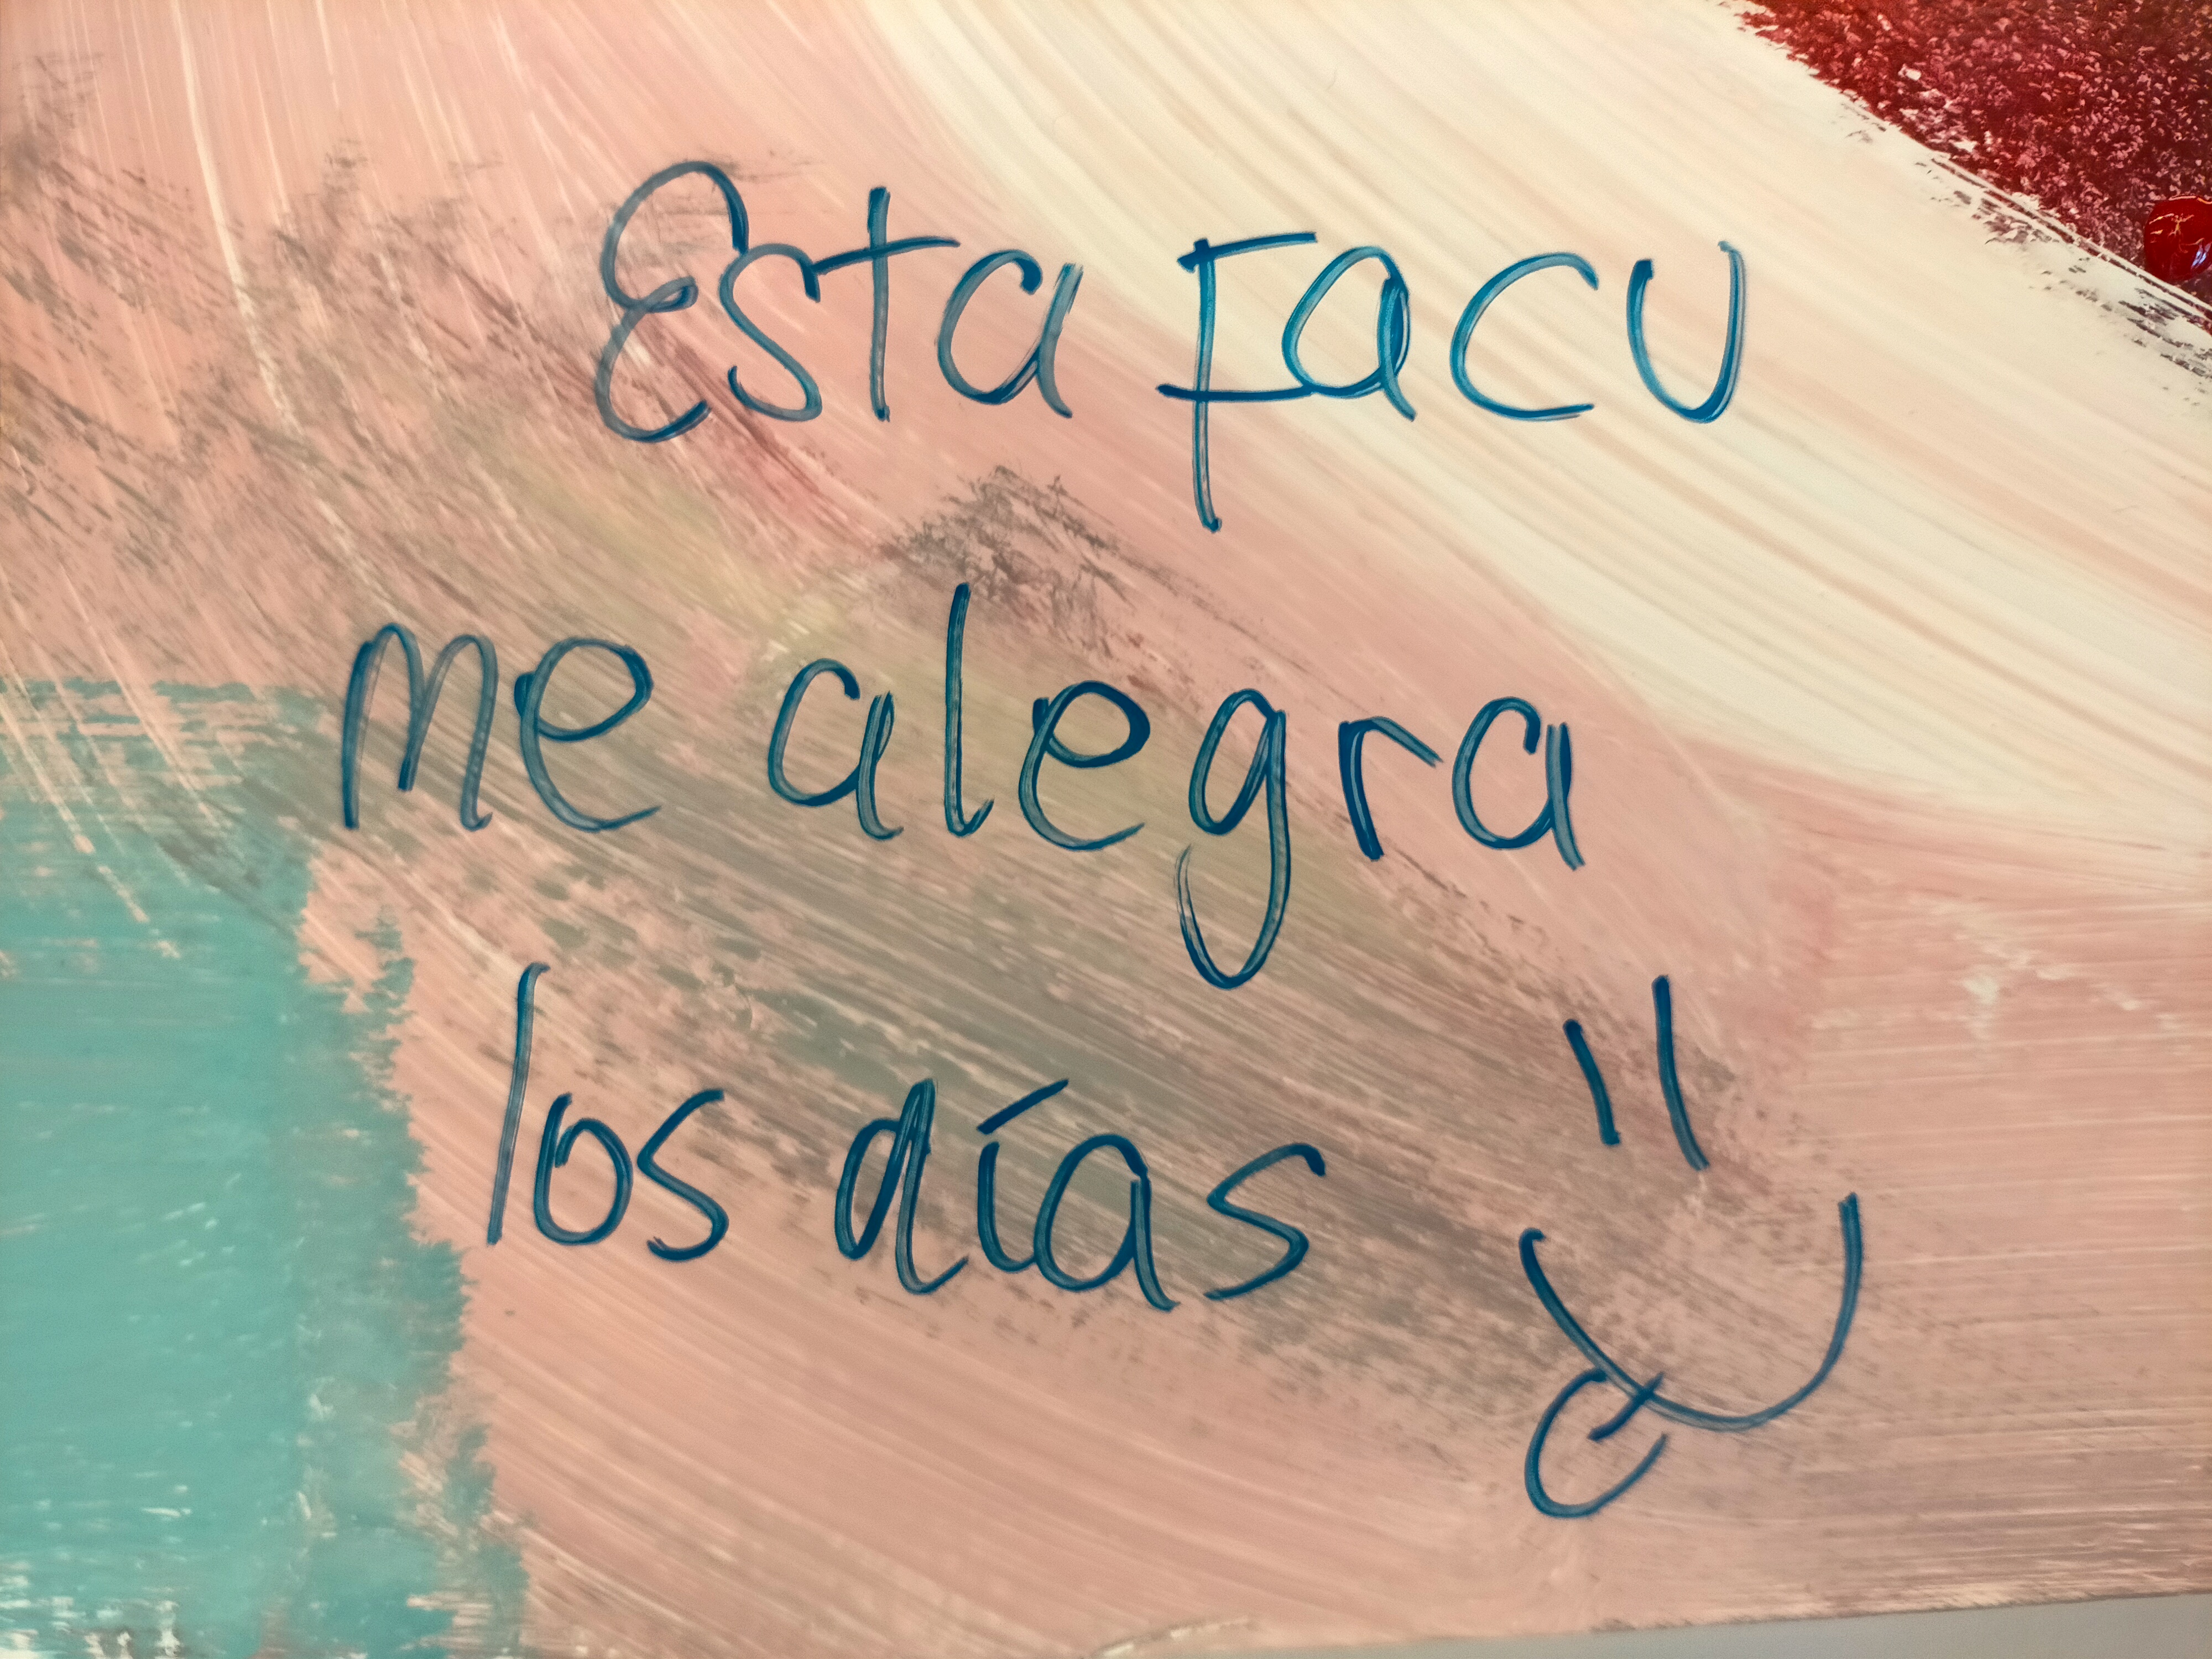 Esta Facu
me alegra
los días